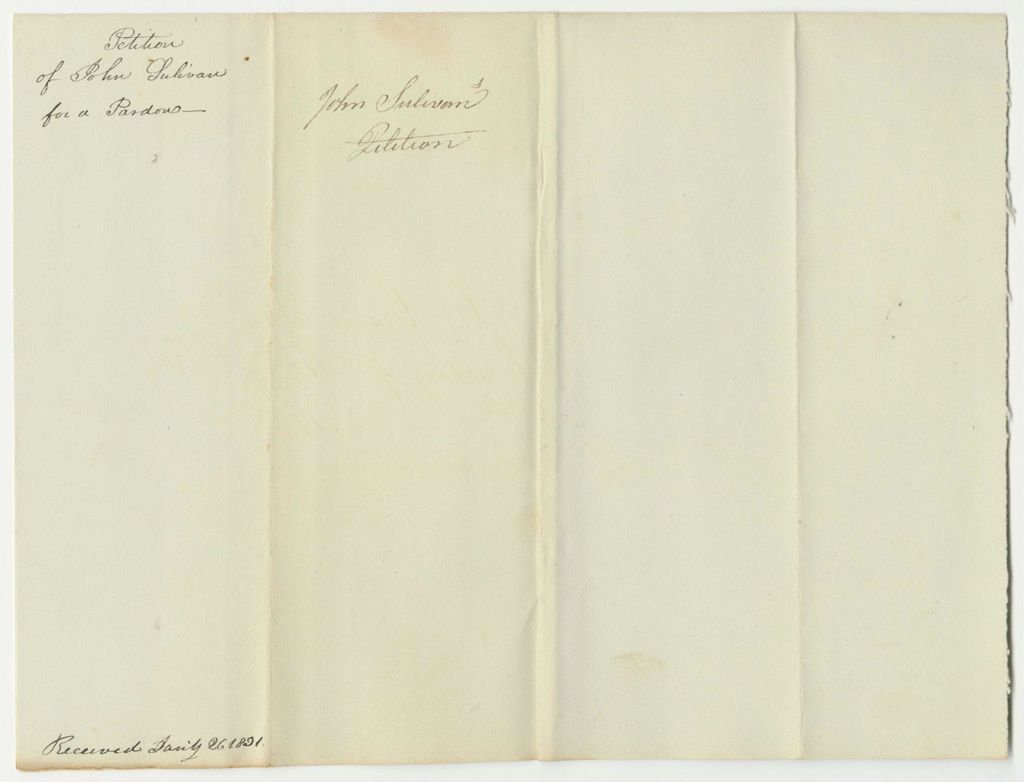 Petition
of John Sulivan
for a Pardon—
John Sulivan's
Petition
Received Jan'y 26 1831.